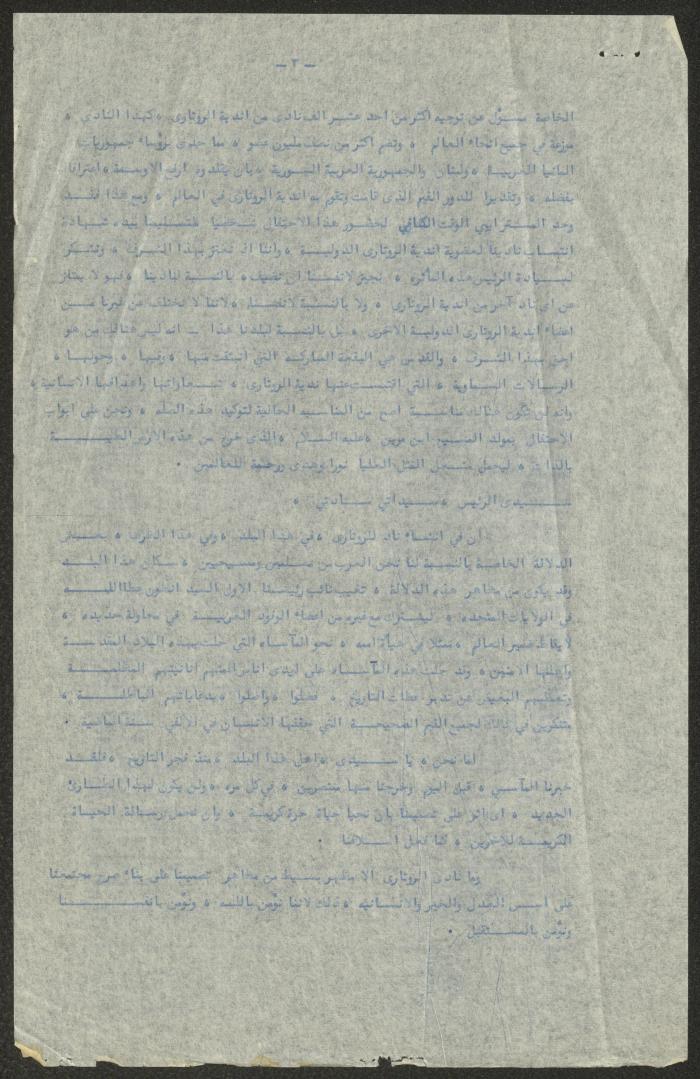 — ٢ —
الخاصة مسؤول عن توجيه اكثر من احد عشر الف نادى من اندية الروتارى ، كهذا النادي ،
موزعة في جميع انحاء العالم ، وتضم اكثر من نصف مليون عضو ، مما حدى برؤساء جمهوريات
المانيا الغربية ، ولبنان والجمهورية العربية السورية ، بان يقلدوه ارفع الاوسمة ، اعترافا
بفضله ، وتقديرا للدور القيم الذى قامت وتقوم به اندية الروتارى في العالم ، ومع هذا فقد
وجد المستر ايبي الوقت الكافي لحضور هذا الاحتفال شخصيا لتسليمنا بيده شهادة
انتساب نادينا لعضوية اندية الروتارى الدولية ، واننا اذ نعتز بهذا الشرف ، ونشكر
لسيادة الرئيس هذه المأثرة ، نجيز لانفسنا ان نضيف ، بالنسبة لنادينا ، فهو لا يمتاز
عن اى ناد آخر من اندية الروتارى ، ولا بالنسبة لانفسنا ، لاننا لا نختلف عن غيرنا من
اعضاء اندية الروتارى الدولية الاخرى ، بل بالنسبة لبلدنا هذا — انه ليس هنالك من هو
احق بهذا الشرف ، والقدس هي البقعة المباركة التي انبثقت منها ، وفيها ، وحولها ،
الرسالات السماوية ، التي اقتبست عنها اندية الروتارى ، شعاراتها واهدافها الانسانية ،
وانه لن تكون هنالك مناسبة اسمح من المناسبة الحالية لتوكيد هذه الصلة ، ونحن على ابواب
الاحتفال بمولد المسيح ابن مريم ، عليه السلام ، الذى خرج من هذه الارض الطيبة
بالذات ، ليحمل مشعل المثل العليا نورا وهدى ورحمة للعالمين .
سيدى الرئيس ، سيداتي سادتي ،
ان في انشاء ناد للروتارى ، في هذا البلد ، وفي هذا الظرف ،
الدلالة الخاصة بالنسبة لنا نحن العرب من مسلمين ومسيحيين ، سكان هذا البلد
وقد يكون من مظاهر هذه الدلالة ، تغيب نائب رئيسنا الاول السيد انطون عطاالله
في الولايات المتحدة ، ليشترك مع غيره من اعضاء الوفود العربية في محاولة جديدة ،
لايقاظ ضمير العالم ، ممثلا في هيأة امم ، نحو المأساه التي حلت بهذه البلاد المقدسة
واهلها الامنين ، وقد حلت هذه المأساه على ايدى اناس اعمتهم انانيتهم
وتعصبهم البغيض عن تدبر عظات التاريخ ، فضلوا ، واضلوا ، بدعاياتهم الباطلة ،
متنكرين في ذلك لجميع القيم الصحيحة التي حققها الانسان في الالفي سنة الماضية .
اما نحن ، يا سيدى ، اهل هذا البلد ، منذ فجر التاريخ ، فلقد
خبرنا المآسي ، قبل اليوم وخرجنا منها منتصرين ، في كل مره ، ولن يكون لهذا الطارئ
الجديد ، اى اثر على تصميمنا بان نحيا حياة حرة كريمة ، وان نحمل رسالة الحياة
الكريمة للآخرين ، كما فعل اسلافنا .
وما نادى الروتارى الا مظهر بسيط من مظاهر تصميمنا على بناء صرح مجتمعنا
على اسس العدل والخير والانسانيه ، ذلك لاننا نؤمن بالله ، ونؤمن بانفسنا
ونؤمن بالمستقبل .